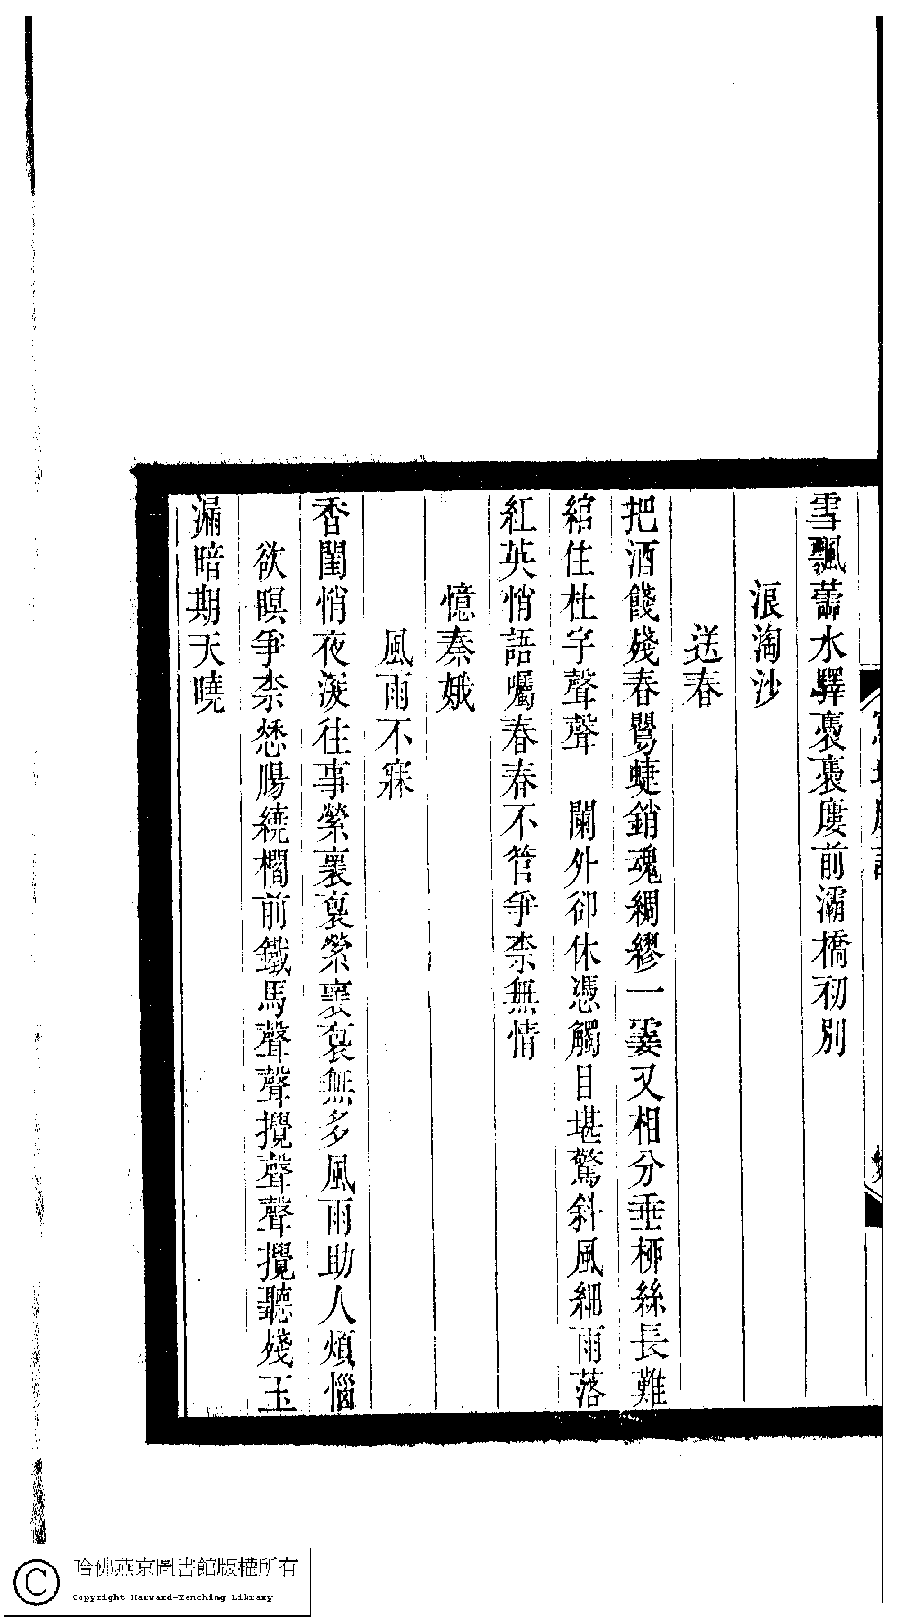 雪飄蕭水驛裊裊廔前灞橋初別
浪淘沙
送春
把酒餞殘春鶯蜨銷魂綢繆一霎又相分垂柳絲長難
綰住杜宇聲聲　闌外卻休憑觸目堪驚斜風細雨落
紅英悄語囑春春不管爭柰無情
憶秦娥
風雨不寐
香閨悄夜深往事縈褱裏縈褱裏無多風雨助人煩惱
欲瞑爭柰愁腸繞櫩前鐵馬聲聲攪聲聲攪聽殘玉
漏暗期天曉
哈佛燕京圖書館版權所有
Copyright Harvard-Yenching Library